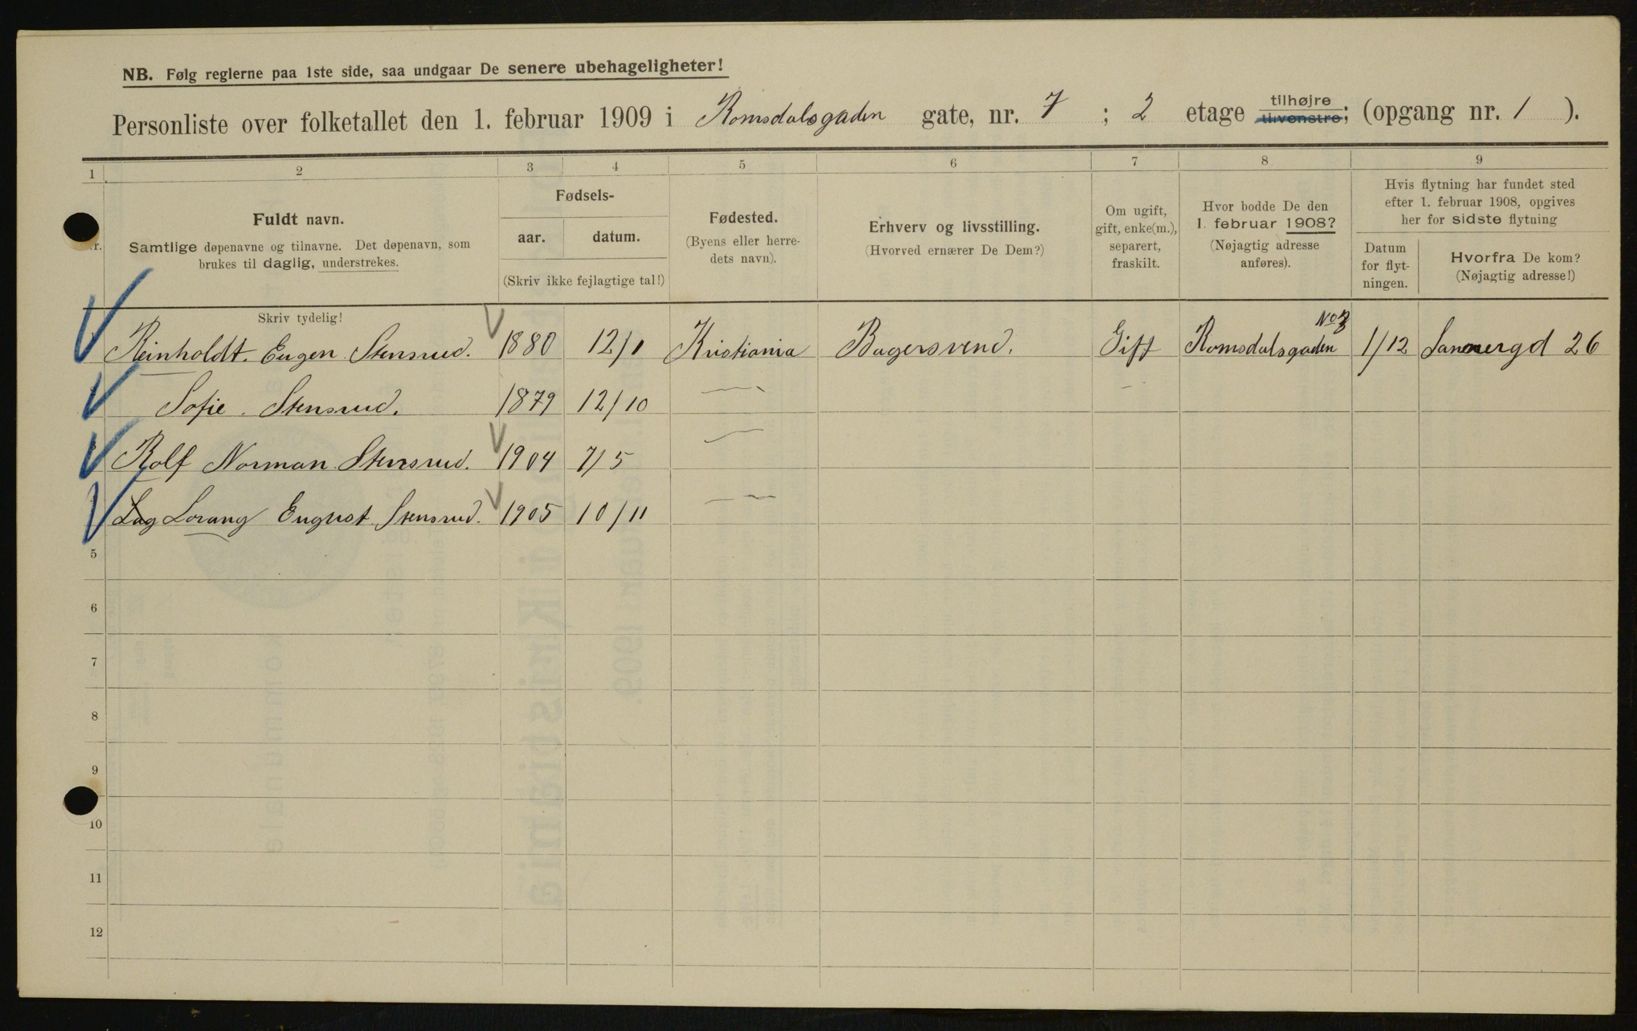 NB. Følg reglerne paa 1ste side, saa undgaar De senere ubehageligheter!
Personliste over folketallet den 1. februar 1909 i Romsdalsgaden gate, nr. 7 ; 2 etage tilhøjre tilvenstre; (opgang nr. 1 ).
1 2 3 4 5 6 7 8 9
Fuldt navn.
Samtlige døpenavne og tilnavne. Det døpenavn, som
brukes til daglig, understrekes.
Skriv tydelig!
Fødsels-
aar. datum.
(Skriv ikke fejlagtige tal!)
Fødested.
(Byens eller herre-
dets navn).
Erhverv og livsstilling.
(Hvorved ernærer De Dem?)
Om ugift,
gift, enke(m.),
separert,
fraskilt.
Hvor bodde De den
1. februar 1908?
(Nøjagtig adresse
anføres).
Hvis flytning har fundet sted
efter 1. februar 1908, opgives
her for sidste flytning
Datum
for flyt-
ningen.
Hvorfra De kom?
(Nøjagtig adresse!)
Reinholdt. Eugen Stensrud. 1880 12/1 Kristiania Bagersvend. Gift Romsdalsgaden 1/12 Sannergd 26
Sofie. Stensrud. 1879 12/10 —
Rolf Norman Stensrud. 1904 7/5 —
Lag Lorang Eugust Stensrud. 1905 10/11 —
5
6
7
8
9
10
11
12